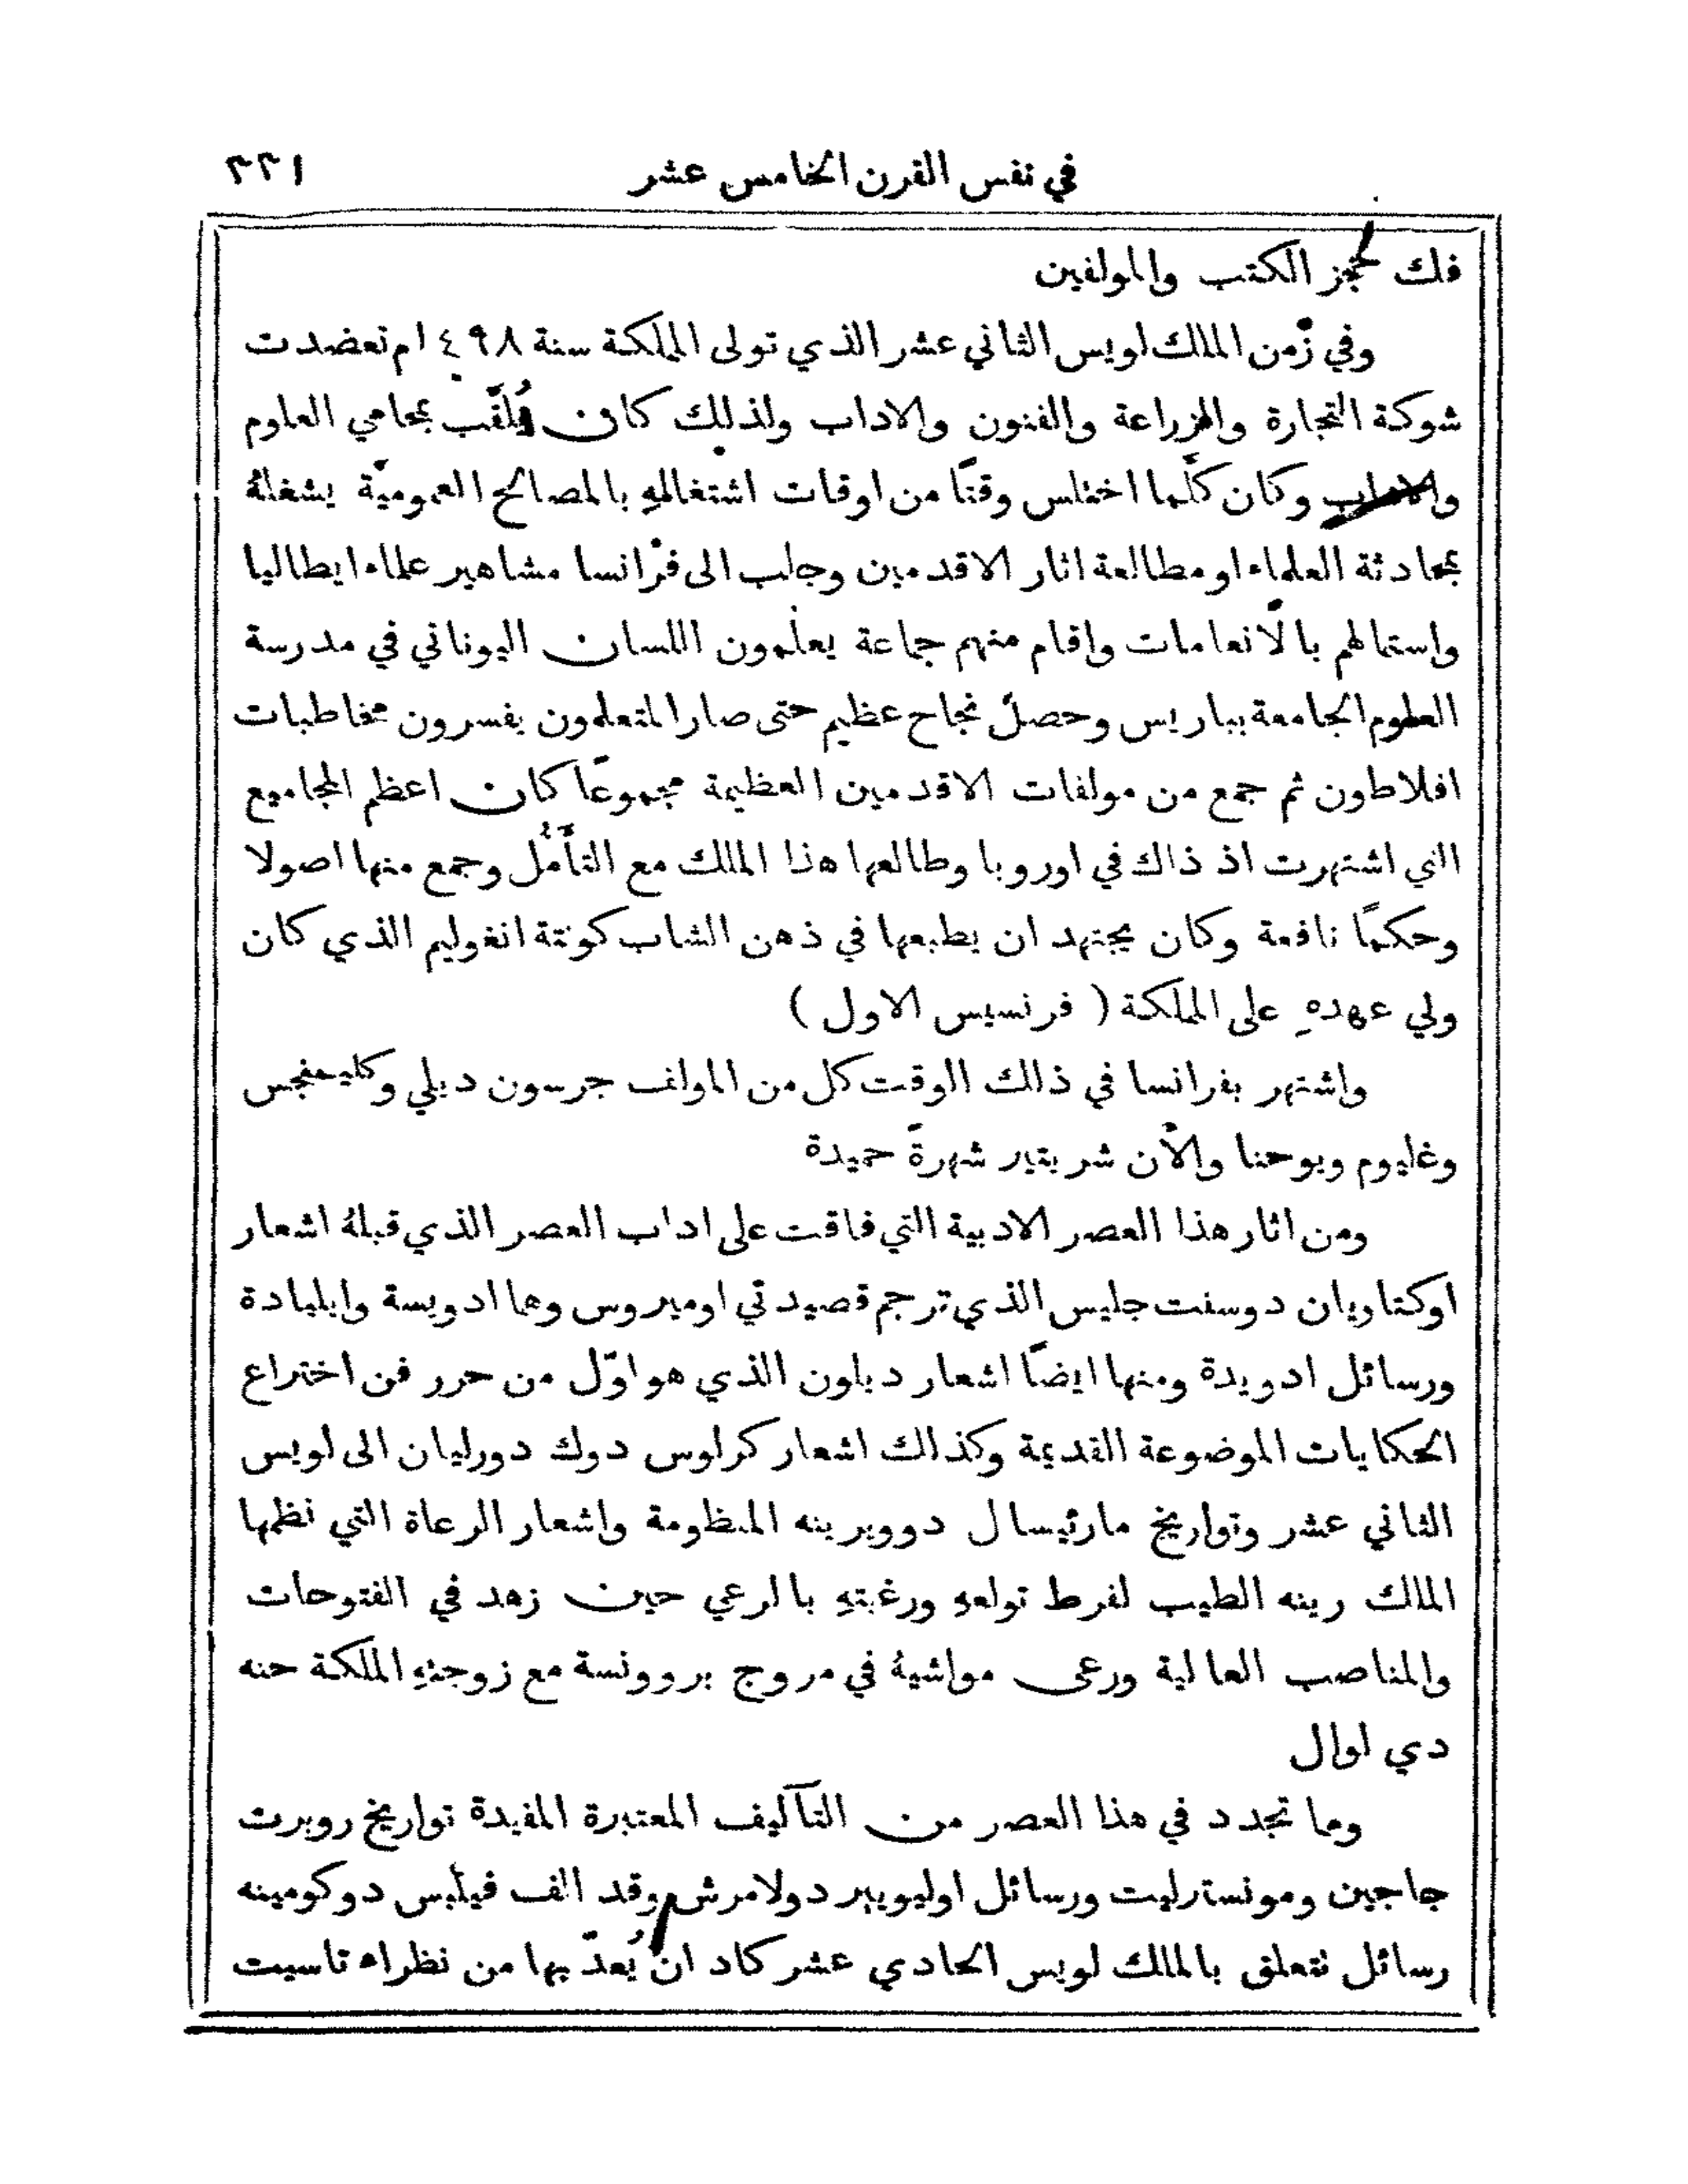 في نفس القرن الخامس عشر ٢٢١
فك لحجز الكتب والمولفين
وفي زمن الملك لويس الثاني عشر الذي تولى المملكة سنة ١٤٩٨م تعضدت
شوكة التجارة والزراعة والفنون والاداب ولذلك كان يُلقَّب بمحامي العلوم
والاداب وكان كلَّما اختلس وقتًا من اوقات اشتغالهِ بالمصالح العموميَّة يشغلهُ
بمحادثة العلماء او مطالعة اثار الاقدمين وجلب الى فرانسا مشاهير علماء ايطاليا
واستمالهم بالانعامات واقام منهم جماعة يعلمون اللسان اليوناني في مدرسة
العلوم الجامعة بباريس وحصل نجاح عظيم حتى صار المتعلمون يفسرون مخاطبات
افلاطون ثم جمع من مولفات الاقدمين العظيمة مجموعًا كان اعظم المجاميع
التي اشتهرت اذ ذاك في اوروبا وطالعها هذا الملك مع التأَمُّل وجمع منها اصولا
وحكمًا نافعة وكان يجتهد ان يطبعها في ذهن الشاب كونتة انغوليم الذي كان
ولي عهدهِ على المملكة ( فرنسيس الاول )
واشتهر بفرانسا في ذلك الوقت كل من المولف جرسون ديلي وكليمنجس
وغليوم ويوحنا والآن شربتير شهرةً حميدة
ومن اثار هذا العصر الادبية التي فاقت على اداب العصر الذي قبلهُ اشعار
اوكتاويان دوسنت جليس الذي ترجم قصيدتي اوميروس وهما ادويسة وايليادة
ورسائل ادويدة ومنها ايضًا اشعار ديلون الذي هو اوّل من حرر فن اختراع
الحكايات الموضوعة القديمة وكذلك اشعار كرلوس دوك دورليان الى لويس
الثاني عشر وتواريخ مارئيسال دووبرينه المنظومة واشعار الرعاة التي نظمها
الملك رينه الطيب لفرط تولعهِ ورغبتهِ بالرعي حين زهد في الفتوحات
والمناصب العالية ورعى مواشيهُ في مروج بروونسة مع زوجتهِ الملكة حنه
دي لوال
وما تجدد في هذا العصر من التآليف المعتبرة المفيدة تواريخ روبرت
جاجين ومونسترليت ورسائل اوليويير دولامرش وقد الف فيلبس دوكومينه
رسائل تتعلق بالملك لويس الحادي عشر كاد ان يُعدّ بها من نظراء تاسيت